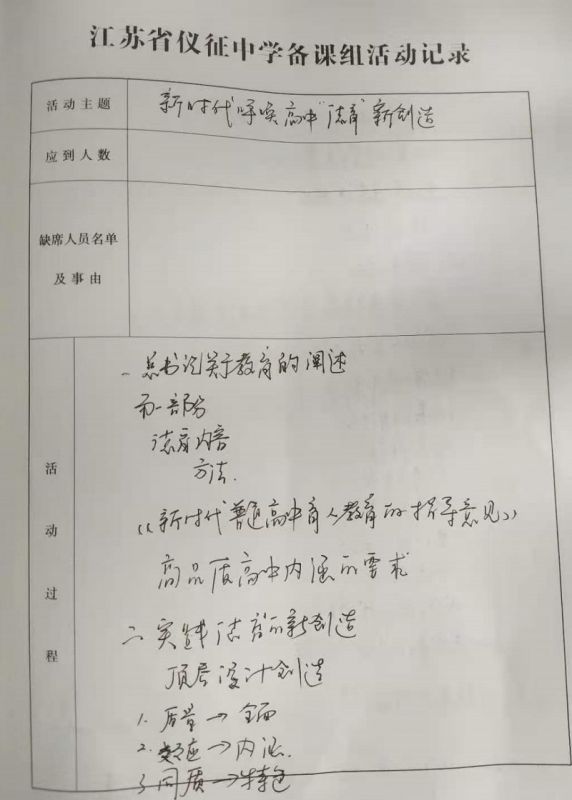 江苏省仪征中学备课组活动记录
活动主题
新时代呼唤高中"德育"新创造
应到人数
缺席人员名单
及事由
活动过程
一 总书记关于教育的阐述
第一部分
德育内容
方法.
《新时代普通高中育人教育的指导意见》
高品质高中内涵的要求
二、实践德育的新创造
顶层设计创造
1. 质量→全面
2. →内涵.
3 同质→特色